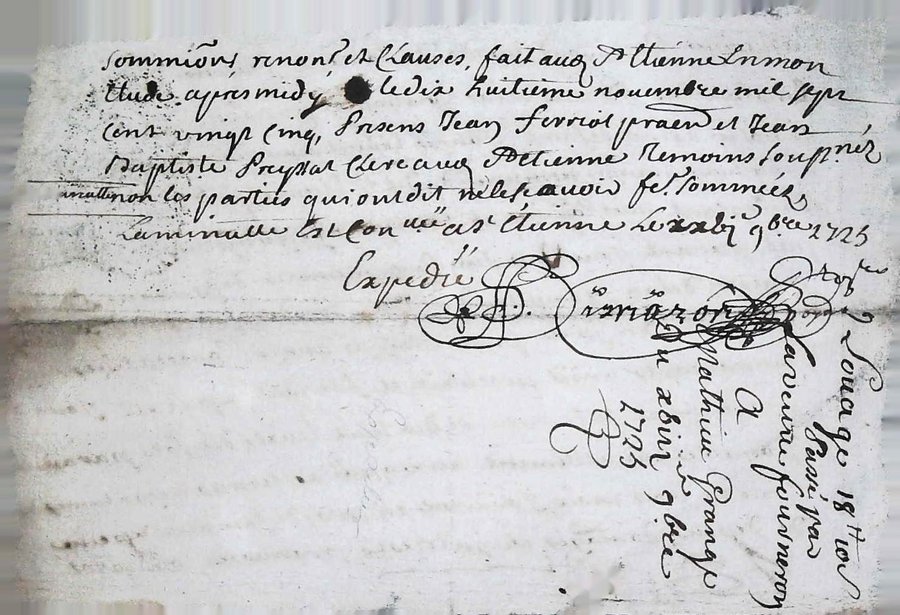 sommions renonᶜ et Clauses, fait aud St Etienne En mon
Etude apres midy le dix huitieme novembre mil sept
cent vingt cinq, Presens Jean ferriot praen et Jean
Baptiste Preynat Clerc aud St Etienne Temoins sousnéz
non les parties qui ont dit ne le sçavoir fe. sommées,
La minutte Est Con uëe a St Etienne Le 9bre 1725
Expedié
Louage 18tt
Passé par
La veuve fourneron
A
Mathieu Grange
Du xbiii 9bre
1725